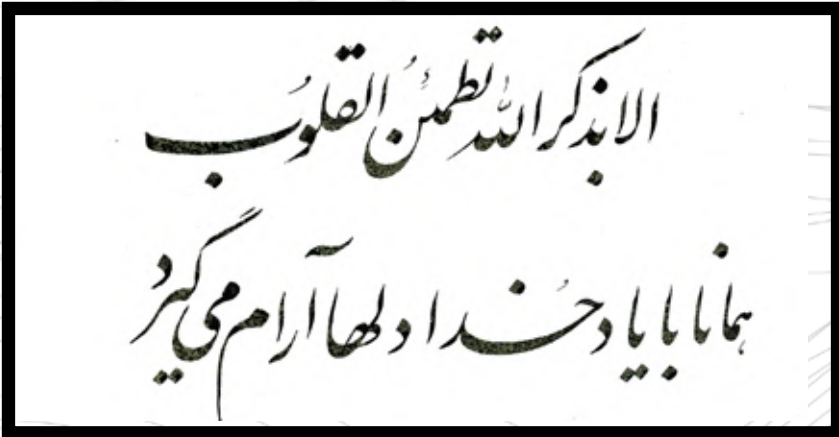 الا بذکر الله تطمئنُ القلوبُ
همانا با یاد خُدا دلها آرام می گیرد